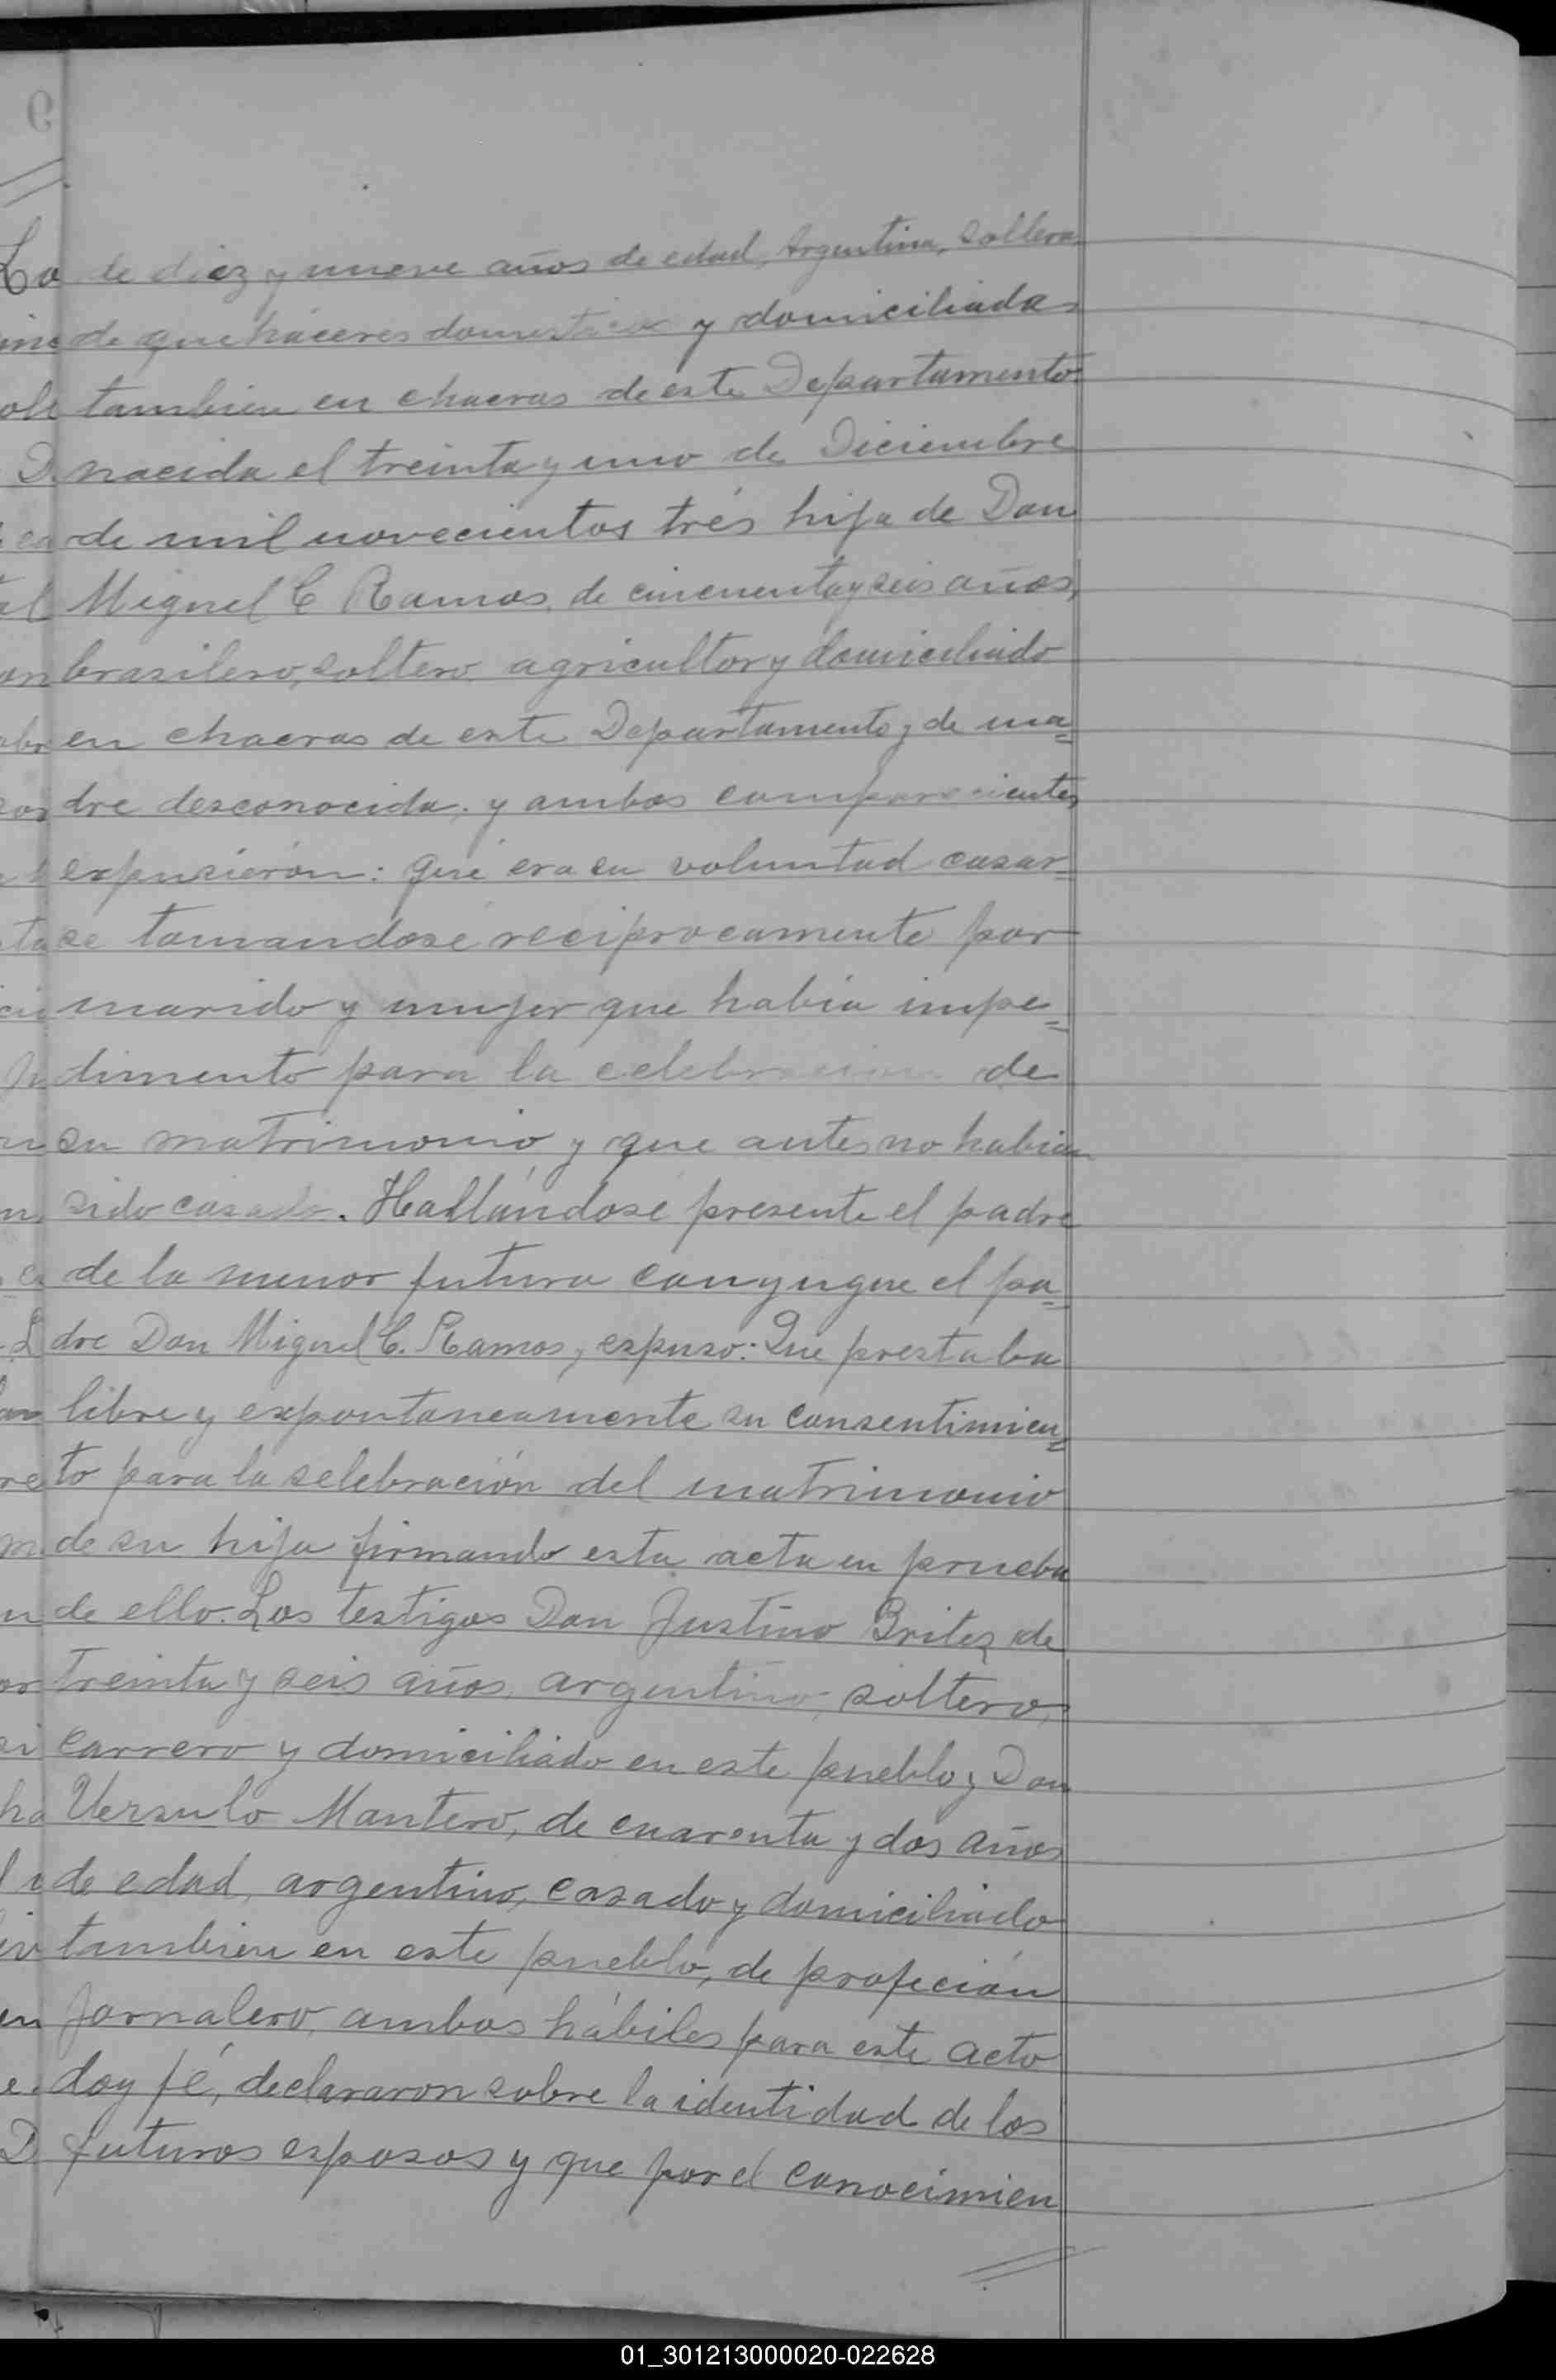 de diez y nueve años de edad, Argentina, soltera
de quehaceres domesticos y domiciliada
tambien en chacras de este Departamento
nacida el treinta y uno de Diciembre
de mil novecientos trés hija de Don
Miguel C Ramos, de cincuenta y seis años,
brasilero, soltero, agricultor y domiciliado
en chacras de este Departamento y de ma=
dre desconocida. y ambos comparecientes
expusierón: qué era su voluntad casar=
se tomandosé reciprocamente por
marido y mujer que habia impe=
dimento para la celebracion de
su matrimonio y que antes no habian
sido casado. Hallándosé presente el padre
de la menor futura conyugue el pa=
dre Don Miguel C. Ramos, expuso: Que prestaba
libre y expontaneamente su consentimien=
to para la selebración del matrimonio
de su hija firmando esta acta en prueba
de ello. Los testigos Don Justino Britez de
treinta y seis años, argentino, soltero,
carrero y domiciliado en este pueblo y Don
Versulo Mantero, de cuarenta y dos años
de edad, argentino, casado y domiciliado
tambien en este pueblo, de profeción
jornalero, ambos hábiles para este acto
doy fé, declararon sobre la identidad de los
futuros esposos y que por el conocimien
01_301213000020-022628